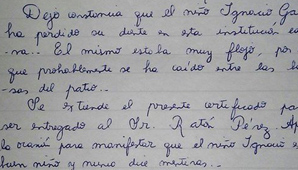 Dejo constancia que el niño Ignacio Ga
ha perdido su diente en esta institución e
na.. El mismo estaba muy flojo, por
que probablemente se ha caído entre las b
sas del patio..
Se extiende el presente certificado pa
ser entregado al Sr. Ratón Pérez. Ap
lo ocasión para manifestar que el niño Ignacio e
buen niño y nunca dice mentiras..